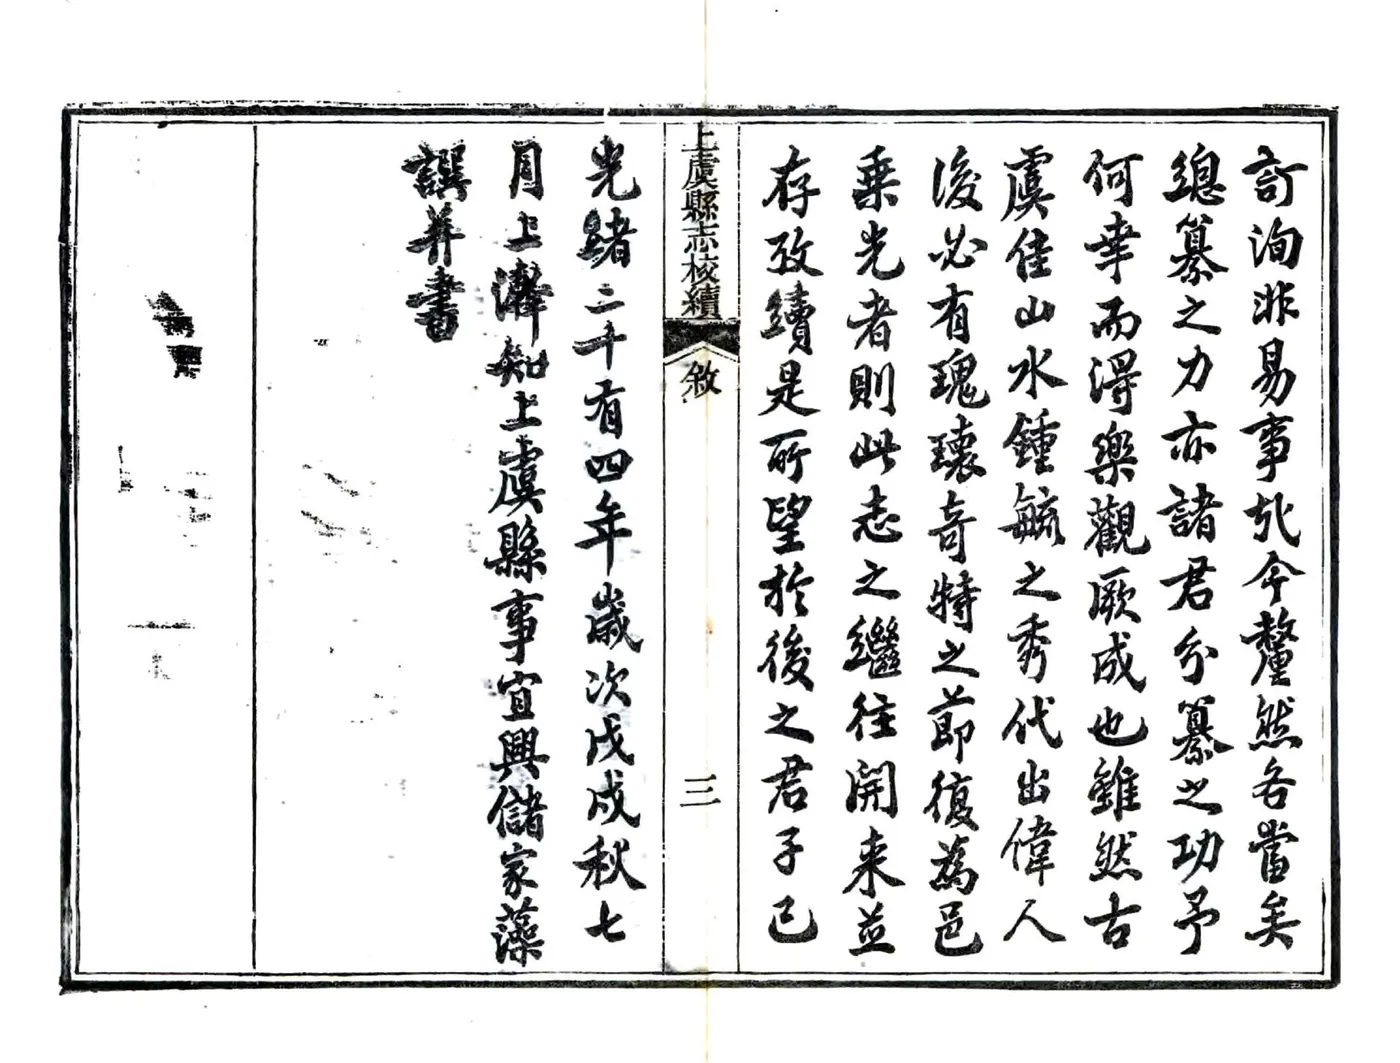 訂洵非易事於今釐然各當矣
總纂之力亦諸君分纂之功予
何幸而得樂觀厥成也雖然古
虞佳山水鍾毓之秀代出偉人
後必有瑰瓌奇特之節復為邑
乗光者則此志之繼往開来並
存攷續是所望於後之君子已
上虞縣志校續
敘
三
光緒二十有四年歲次戊戌秋七
月上澣知上虞縣事宜興儲家藻
譔并書